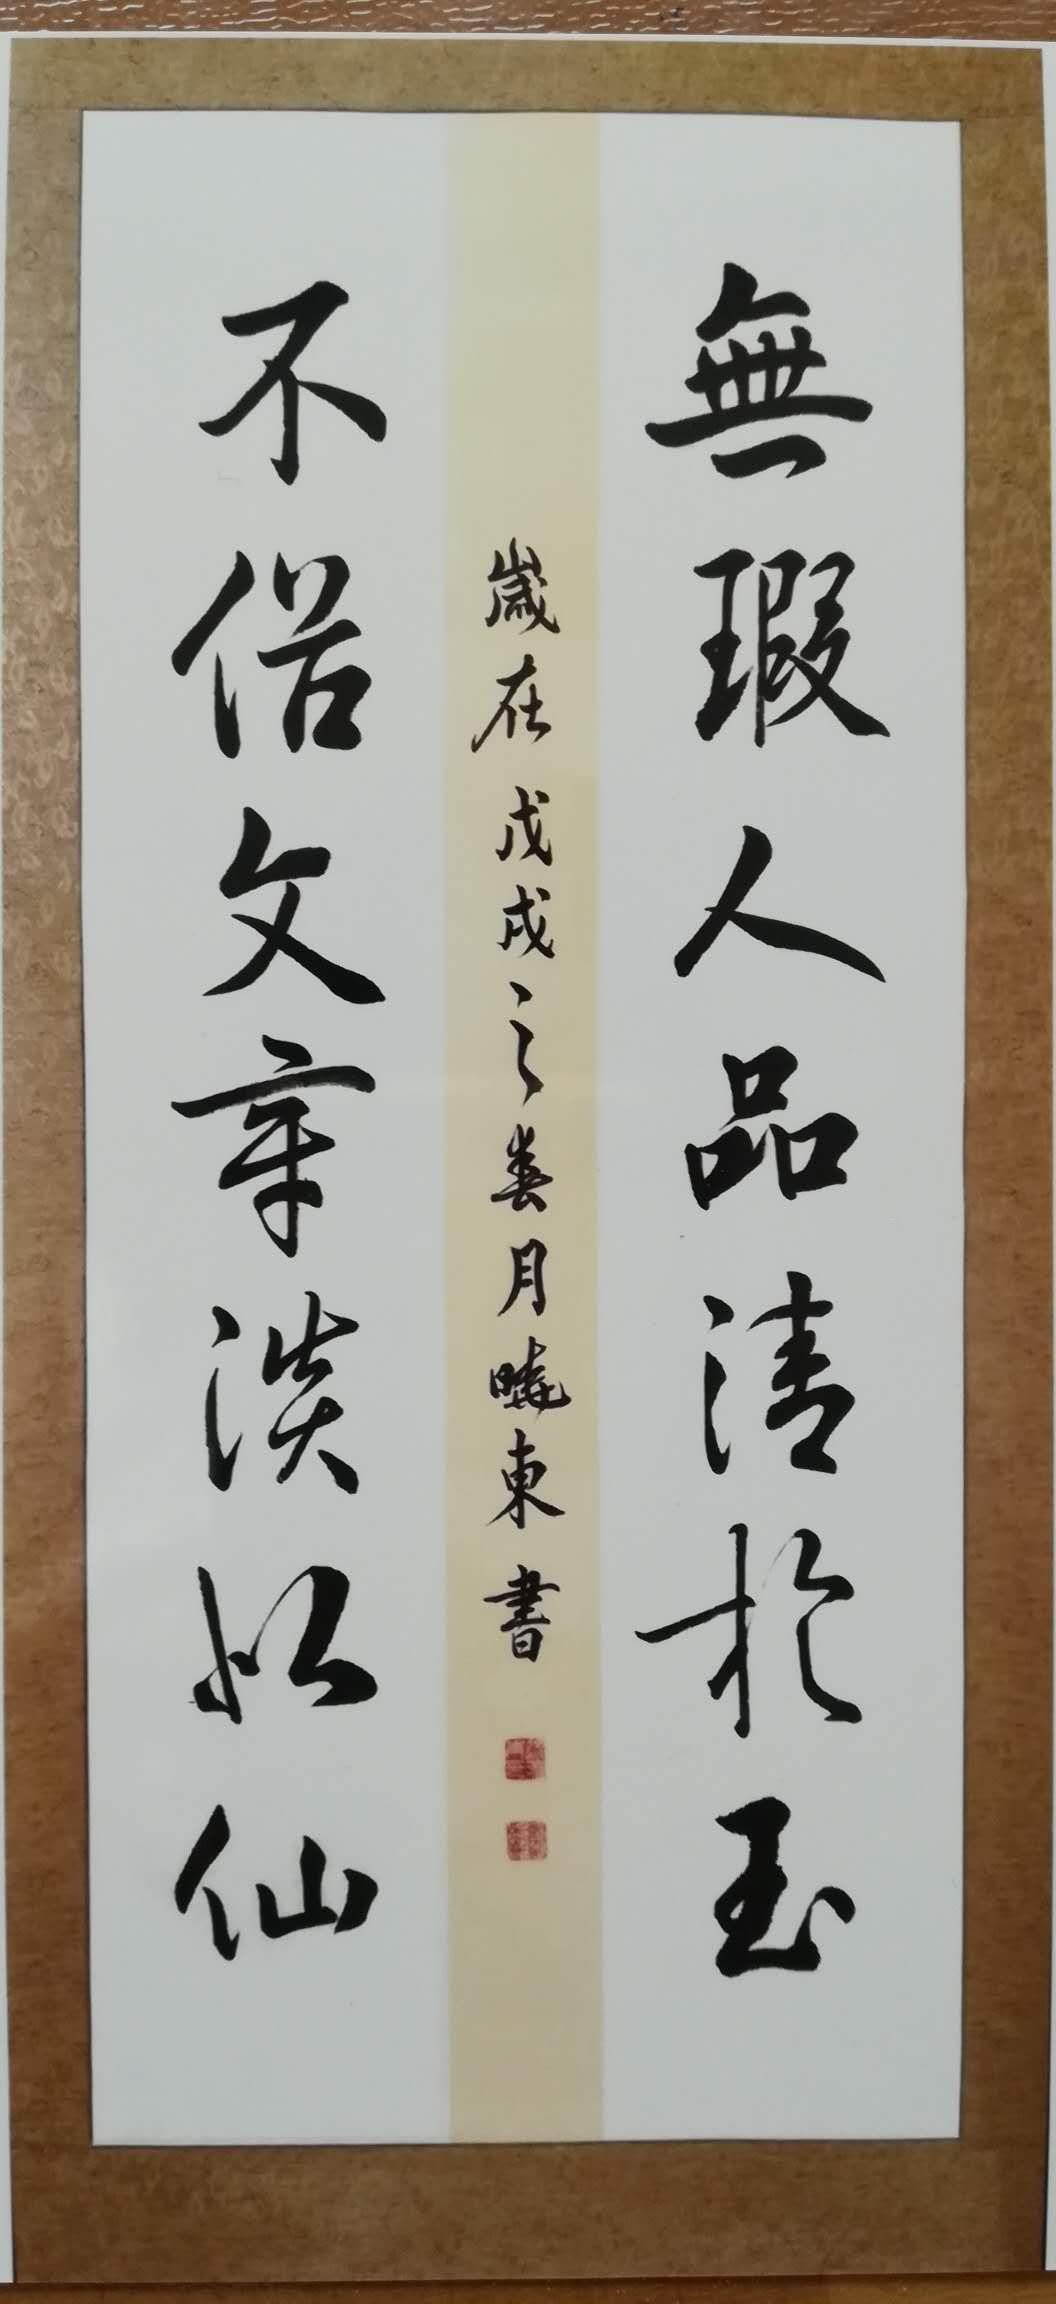 無瑕人品清於玉
不俗文章淡似仙
歲在戊戌之春月曉東書